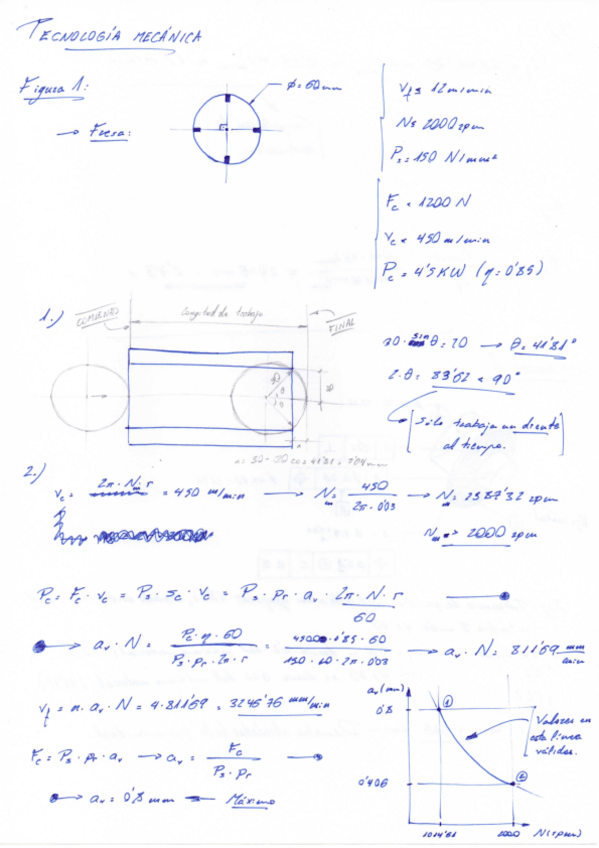 TECNOLOGÍA MECÁNICA
Figura 1:
→ Fresa:
ϕ = 60 mm
Vf ≤ 12 m/min
N ≤ 2000 rpm
Ps = 150 N/mm²
Fc < 1200 N
Vc < 450 m/min
Pc = 4'5 KW (η = 0'85)
1.)
COMIENZO
Longitud de trabajo
FINAL
30 · sin θ = 20 → θ = 41'81°
2·θ = 83'62 < 90°
[Sólo trabaja un diente al tiempo.]
2.)
Vc = 2π · Nm · r = 450 m/min → Nm = 450 / 2π · 0'03 → Nm = 2387'32 rpm
Nm => 2000 rpm
Pc = Fc · Vc = Ps · Sc · Vc = Ps · Pr · av · 2π · N · r / 60
→ av · N = Pc · η · 60 / Ps · pr · 2π · r = 4500 · 0'85 · 60 / 150 · 10 · 2π · 0'03 → av · N = 811'69 mm/min
Vf = n · av · N = 4 · 811'69 = 3246'76 mm/min
Fc = Ps · pr · av → av = Fc / Ps · pr
→ av = 0'8 mm Máximo
av (mm)
0'8
①
Valores en esta línea válidos.
0'406
②
1014'61
2000
N (rpm)